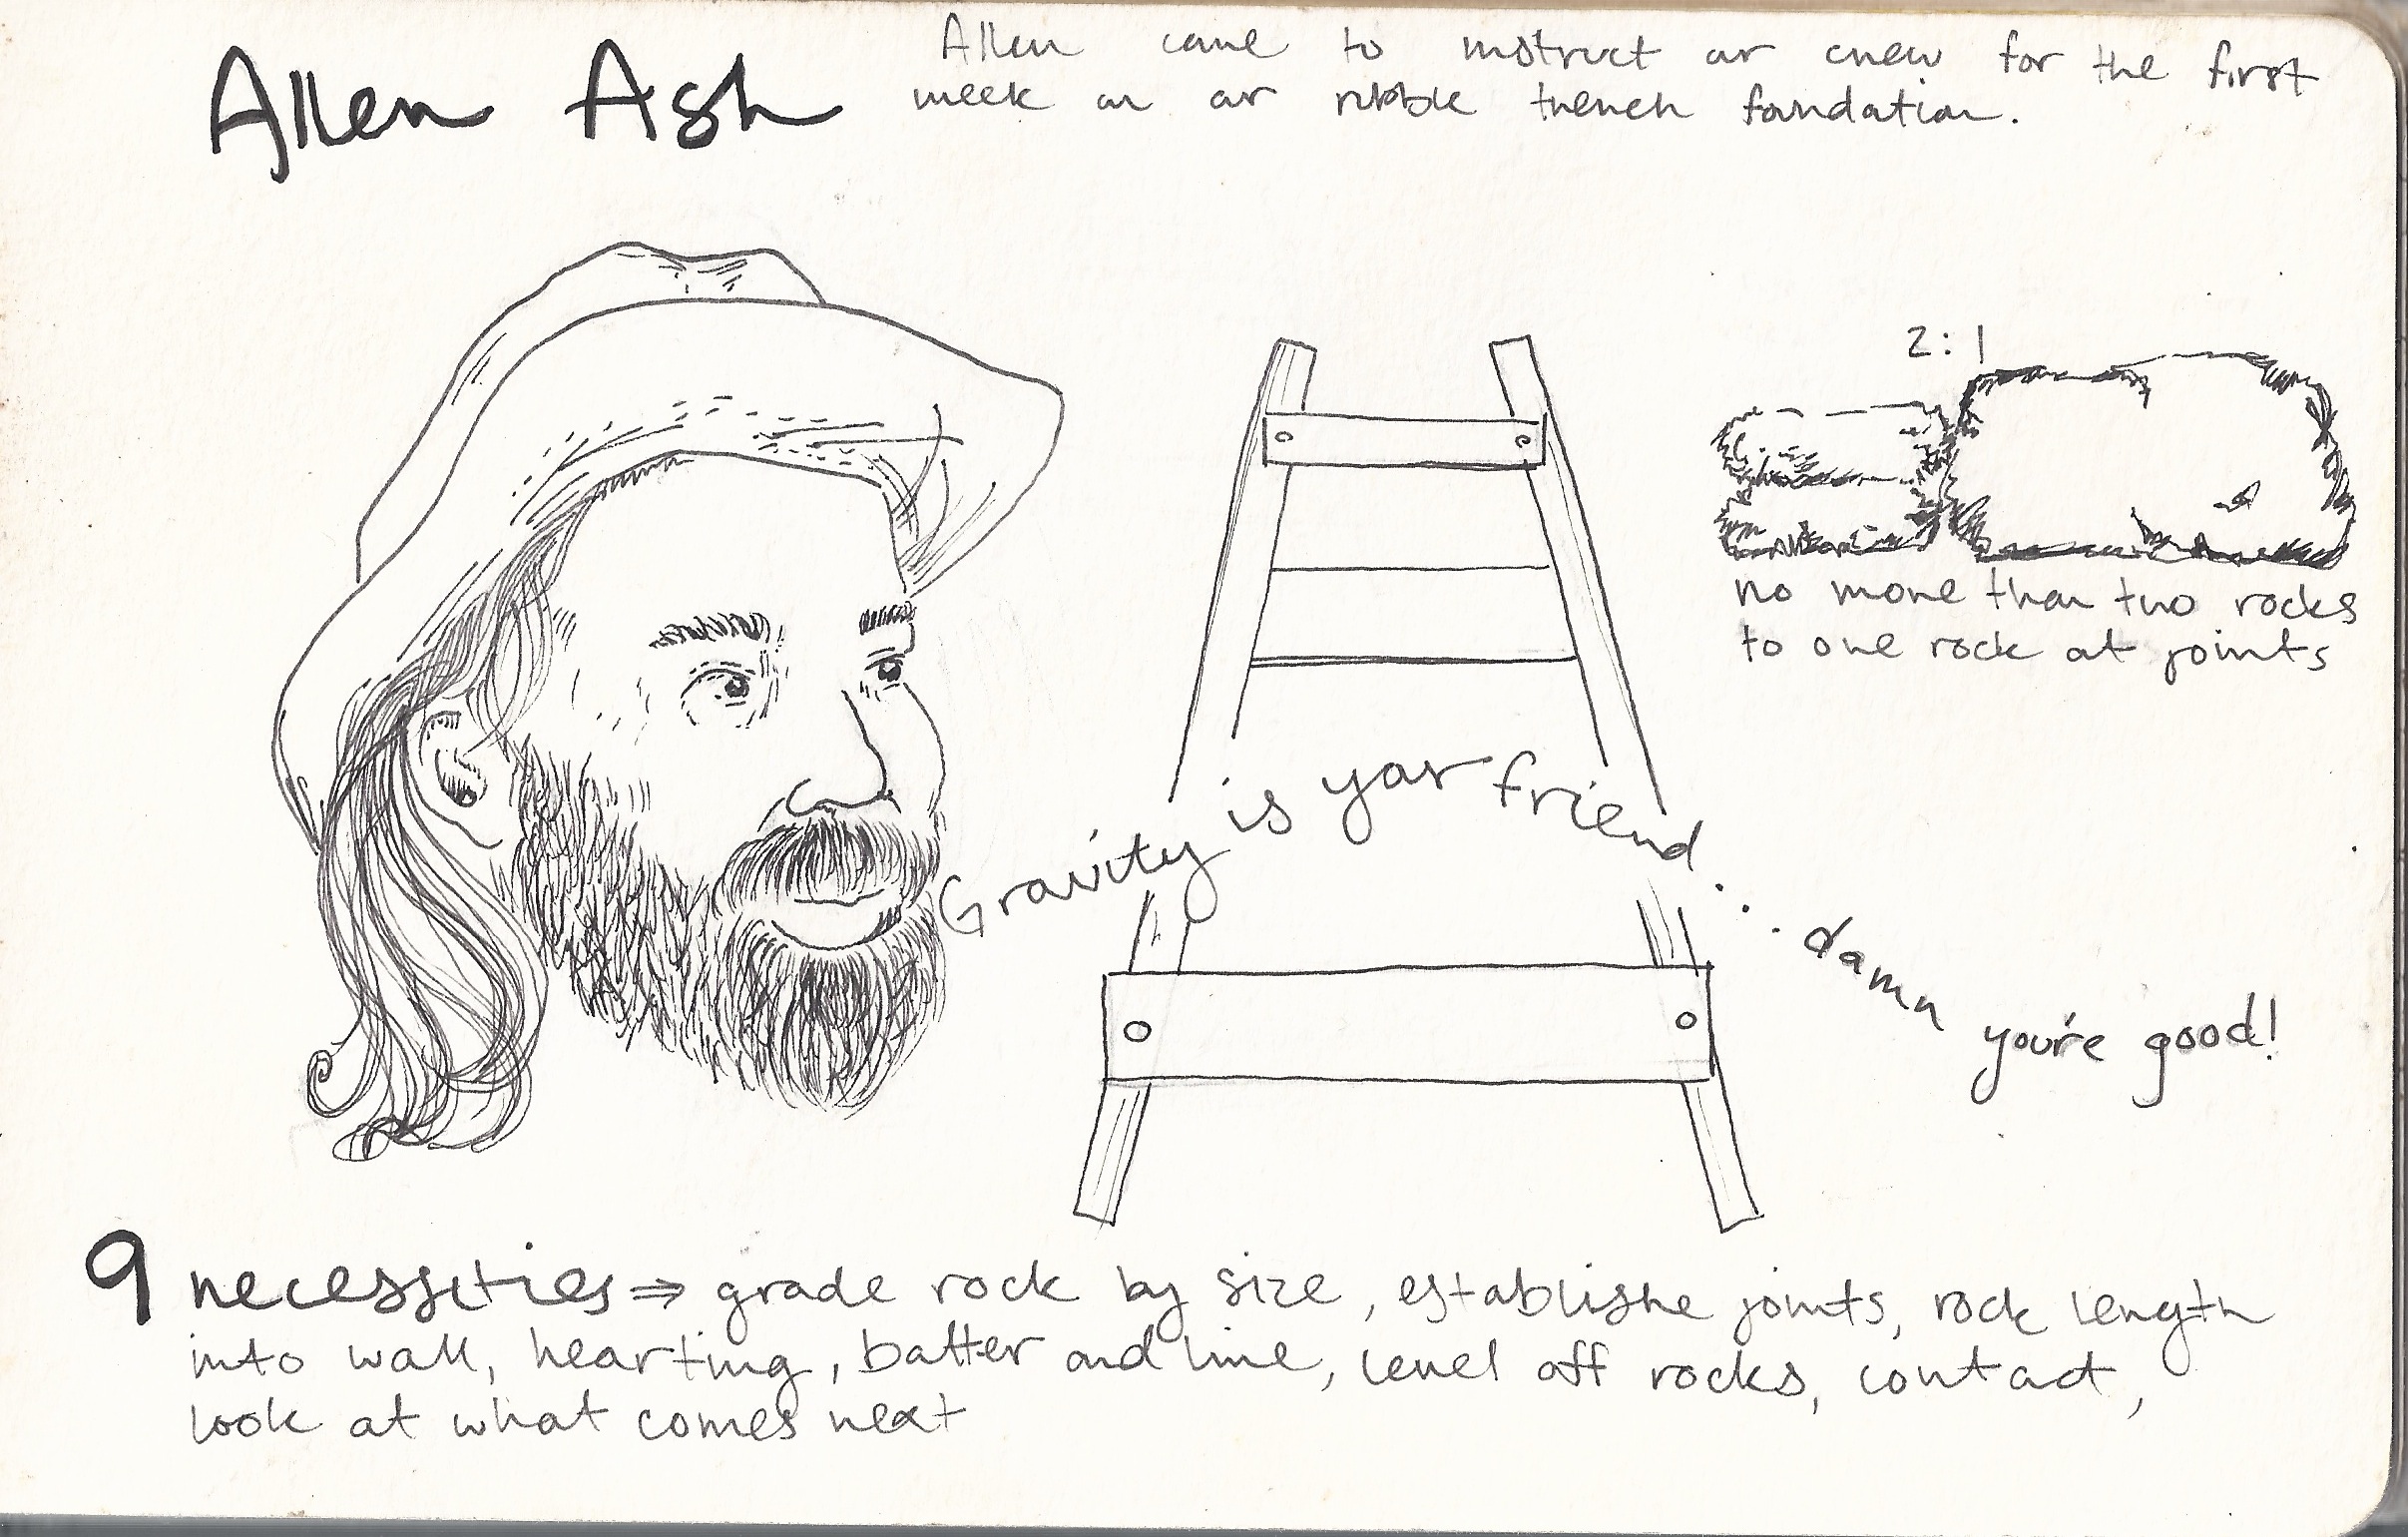 Allen Ash
Allen came to instruct our crew for the first
week on our rubble trench foundation.
2:1
no more than two rocks
to one rock at joints
Gravity is your friend... damn you're good!
9 necessities ⇒ grade rock by size, establishe joints, rock length
into wall, hearting, batter and line, level off rocks, contact,
look at what comes next